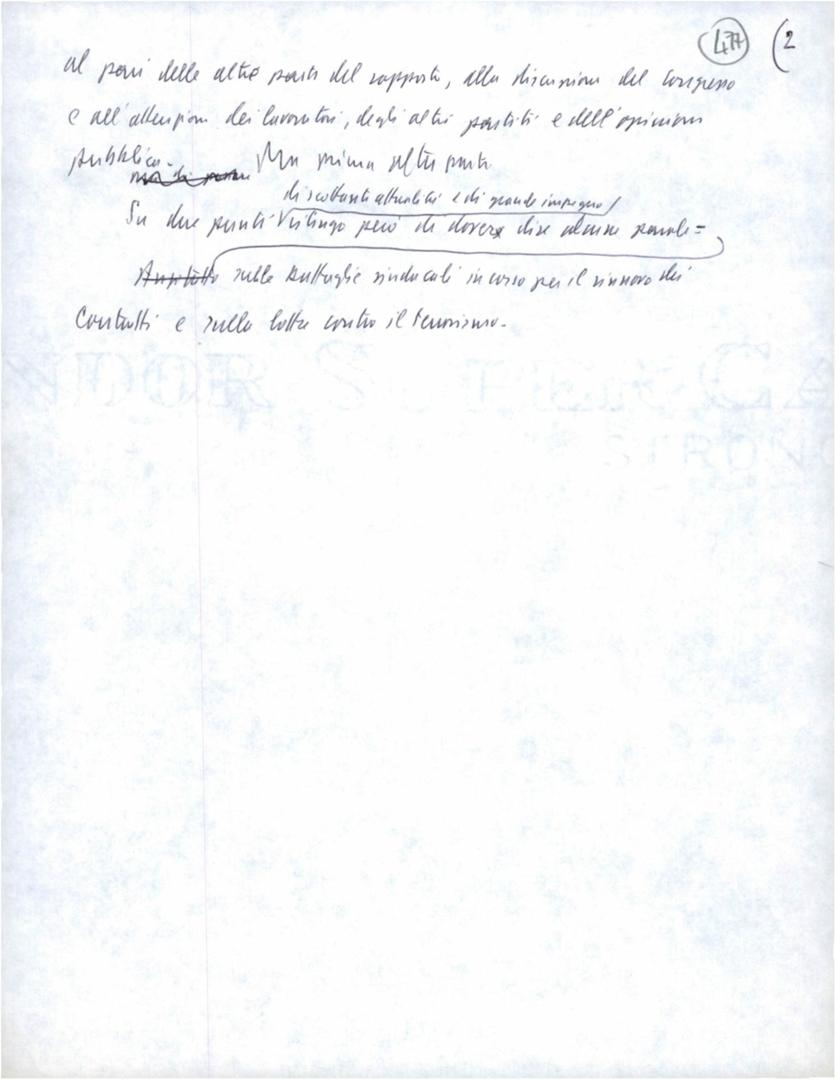 477 (2
al pari delle altre parti del rapporto, alla discussione del Congresso
e all'attenzione dei lavoratori, degli altri partiti e dell'opinione
pubblica. Ma prima
di scottante attualità e di grande impegno
Su due punti ritengo però di dovere dire alcune parole =
Anzitutto sulle battaglie sindacali in corso per il rinnovo dei
Contratti e sulla lotta contro il terrorismo.